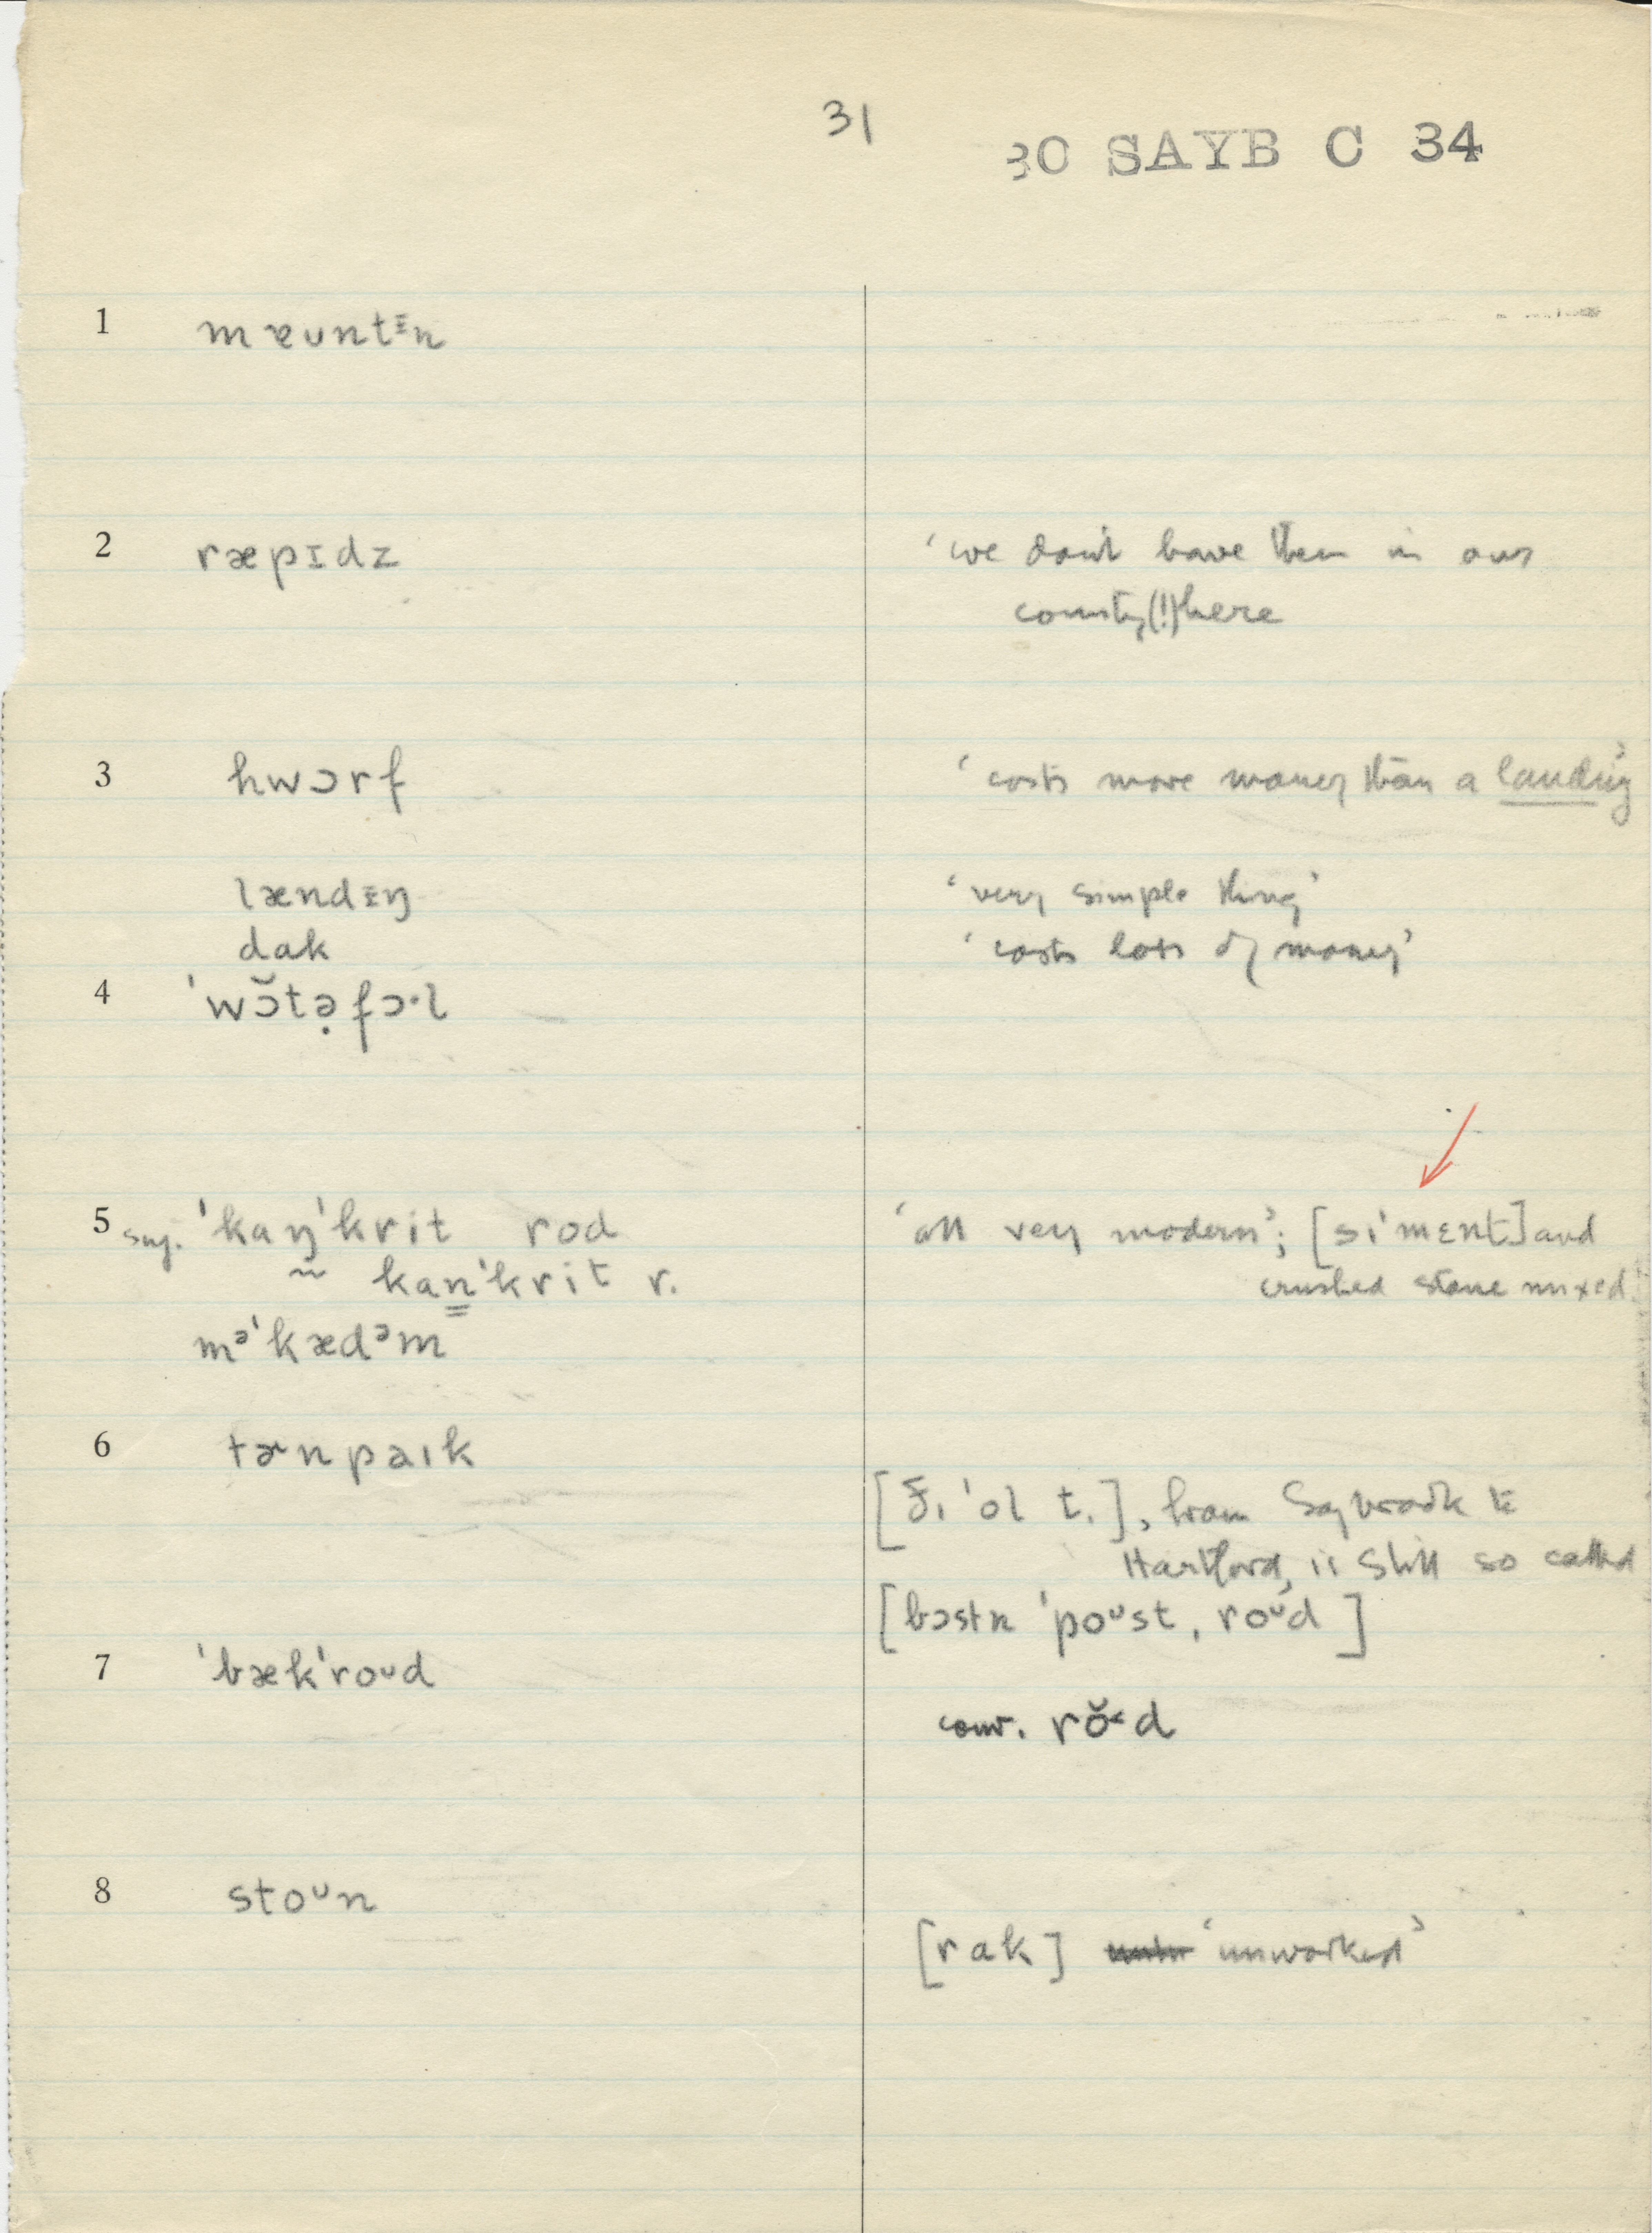 31
30 SAYB C 34
1 mɐuntᵻn
2 ræpɪdz ‘we don't have them in our
county(!)here
3 hwɔrf ‘costs more money than a landing’
lændᵻŋ ‘very simple thing’
dak ‘costs lots of money’
4 ˈwɔ̆tə̣fɔ·l
5 sug. ˈkaŋˈkrit rod ‘all very modern’; [siˈmɛnt] and
~ kan̳ˈkrit r. crushed stone mixed
mᵊˈkædᵊm
6 tɚnpaɪk
[ðɪ ˈol t.], from Saybrook to
Hartford, is still so called
[bɔstn ˈpoᴜst ˌroᴜd]
7 ˈbækˈroᴜd
conv. rŏ˂d
8 stoᴜn
[rak] ‘unworked’